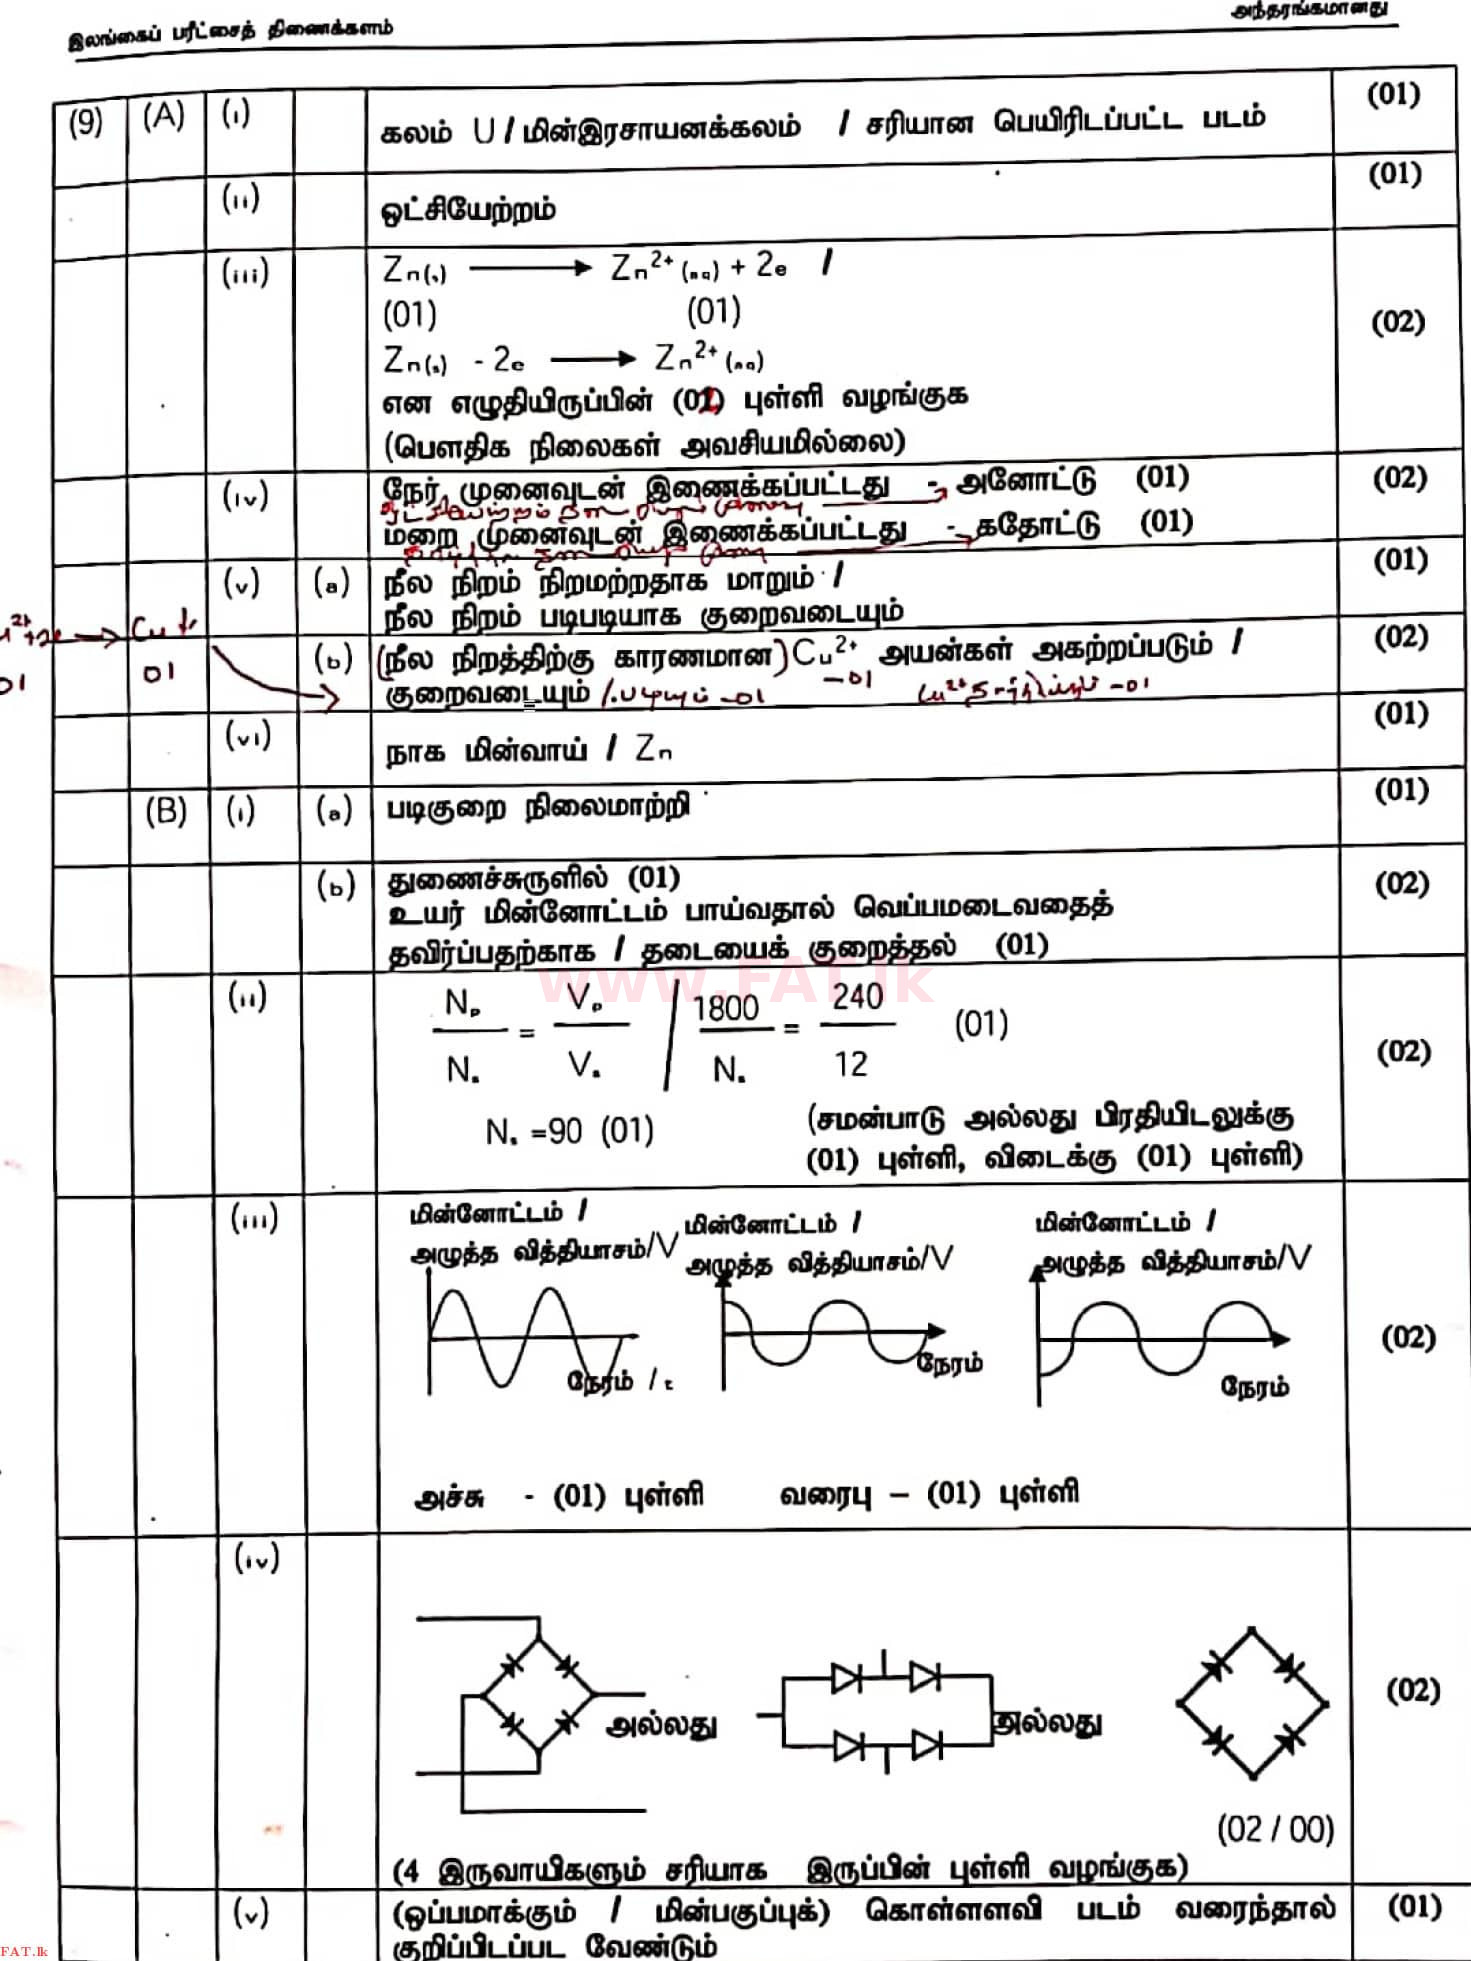 இலங்கைப் பரீட்சைத் திணைக்களம்
அந்தரங்கமானது
(9) (A) (i) கலம் U / மின்இரசாயனக்கலம் / சரியான பெயிரிடப்பட்ட படம் (01)
(ii) ஒட்சியேற்றம் (01)
(iii) Zn(s) ⟶ Zn²⁺(aq) + 2e /
(01) (01)
(02)
Zn(s) - 2e ⟶ Zn²⁺(aq)
என எழுதியிருப்பின் (01) புள்ளி வழங்குக
(பௌதிக நிலைகள் அவசியமில்லை)
(iv) நேர் முனைவுடன் இணைக்கப்பட்டது - அனோட்டு (01) (02)
மறை முனைவுடன் இணைக்கப்பட்டது - கதோட்டு (01)
(v) (a) நீல நிறம் நிறமற்றதாக மாறும் / (01)
நீல நிறம் படிபடியாக குறைவடையும்
→ Cu
01 01
(b) (நீல நிறத்திற்கு காரணமான) Cu²⁺ அயன்கள் அகற்றப்படும் / (02)
-01
குறைவடையும் -01 Cu²⁺ -01
(vi) நாக மின்வாய் / Zn (01)
(B) (i) (a) படிகுறை நிலைமாற்றி (01)
(b) துணைச்சுருளில் (01) (02)
உயர் மின்னோட்டம் பாய்வதால் வெப்பமடைவதைத்
தவிர்ப்பதற்காக / தடையைக் குறைத்தல் (01)
www.FAT.lk
(ii) Np/Ns = Vp/Vs / 1800/Ns = 240/12 (01) (02)
Ns =90 (01) (சமன்பாடு அல்லது பிரதியிடலுக்கு
(01) புள்ளி, விடைக்கு (01) புள்ளி)
(iii) மின்னோட்டம் / மின்னோட்டம் / மின்னோட்டம் /
அழுத்த வித்தியாசம்/V அழுத்த வித்தியாசம்/V அழுத்த வித்தியாசம்/V
(02)
நேரம் / t நேரம் நேரம்
அச்சு - (01) புள்ளி வரைபு – (01) புள்ளி
(iv) (02)
அல்லது அல்லது
(02 / 00)
(4 இருவாயிகளும் சரியாக இருப்பின் புள்ளி வழங்குக)
(v) (ஒப்பமாக்கும் / மின்பகுப்புக்) கொள்ளளவி படம் வரைந்தால் (01)
குறிப்பிடப்பட வேண்டும்
FAT.lk